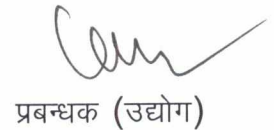 प्रबन्धक (उद्योग)